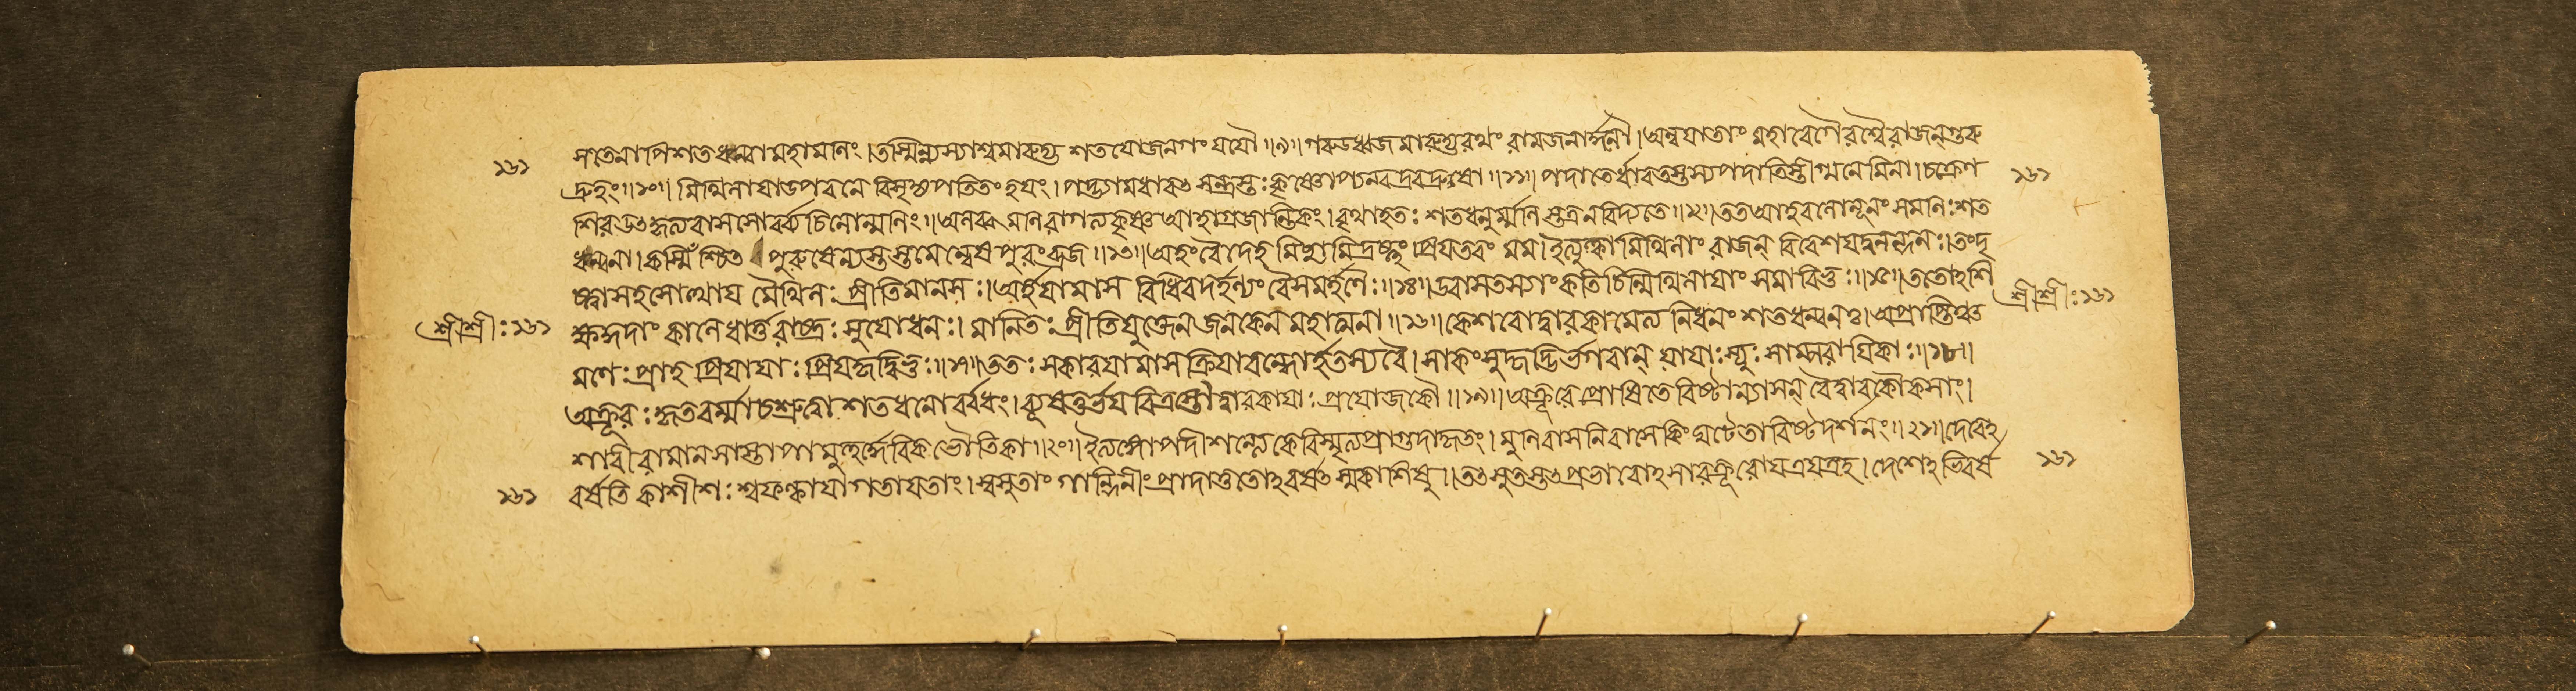 ১৬১
সতেনাপি শতধন্বা মহামনিং।তস্মিন্ন্যস্যাশ্বমারুহ্য শতযোজনগং যযৌ॥৯॥গরুডধ্বজমারুহ্যরথং রামজনার্দ্দনৌ।অন্বযাতাং মহাবেগৈরশ্বৈরাজন্গুরু
দ্রুহং॥১০॥মিথিলাযাডপবনে বিসৃজ্যপতিতং হযং।পদ্ভ্যামধাবৎ সন্ত্রস্তঃকৃষ্ণোপ্যন্বদ্রবদ্রুষা॥১১॥পদাতের্ধাবতস্তস্যপদাতিস্তীগ্মনেমিনা।চক্রেণ
১৬১
শিরউৎকৃত্যবাসসোবর্ব্বচিনোন্মনিং॥অলব্ধমনিরাগত্যকৃষ্ণআহাগ্রজান্তিকং।বৃথাহতঃ শতধনুর্ম্মনিস্তত্রনবিদ্যতে॥১২॥ততআহবলোনূনংসমনিঃশত
ধন্বনা।কস্মিঁশ্চিৎ পুরুষেন্যস্তস্তমেন্বেষপুরংব্রজ॥১৩॥অহংবৈদেহমিচ্ছামিদ্রষ্টুং প্রিযতমং মম।ইত্যুক্ত্বামিথিলাং রাজন্ বিবেশযদুনন্দনঃ।তংদৃ
ষ্ট্বাসহসোত্থায মৈথিলঃ প্রীতিমানসঃ।অর্হযামাস বিধিবদর্হন্যং বৈসমর্হণৈঃ॥১৪॥উবাসতস্যাংকতিচিন্মিথিলাযাং সমাবিভুঃ॥১৫॥ততোঽশি
শ্রীশ্রীঃ১৬১
শ্রীশ্রীঃ১৬১
ক্ষদ্গদাং কালেধার্ত্তরাষ্ট্রঃ সুযোধনঃ।মানিতঃ প্রীতিযুক্তেনজনকেনমহাত্মনা॥১৬॥কেশবোদ্বারকামেত্য নিধনং শতধন্বনঃ।অপ্রাপ্তিঞ্চ
মণেঃপ্রাহ প্রিযাযাঃপ্রিযকৃদ্বিভুঃ॥১৭॥ততঃ সকারযামাস ক্রিযাবন্ধোর্হতস্যবৈ।সাকংসুহৃদ্ভির্ভগবান্ যাযাঃস্যুঃ সাম্পরাযিকাঃ॥১৮॥
অক্রূরঃকৃতবর্ম্মাচশ্রুত্বা শতধনোর্বধং।ব্যূষতুর্ভযবিত্রস্তৌদ্বারকাযাঃপ্রযোজকৌ॥১৯॥অক্রূরে প্রোষিতেবিষ্টান্যাসন্ বৈদ্বারকৌকসাং।
শারীরামানসাস্তাপামুহুর্দ্দৈবিকভৌতিকা॥২০॥ইত্যঙ্গোপদীশন্ত্যেকেবিস্মৃত্যপ্রাগুদাহৃতং।মুনিবাসনিবাসেকিংঘটেতাবিষ্টদর্শনং॥২১॥দেবেঽ
১৬১
১৬১
বর্ষতি কাশীশঃ শ্বফল্কাযাগতাযতাং।স্বসুতাং গান্দিনীংপ্রাদাত্ততোঽবর্ষৎ স্মকাশিষু॥তৎসুতস্তৎপ্রভাবোঽসারক্রূরোযত্রযত্রহ।দেশেঽভিবর্ষ